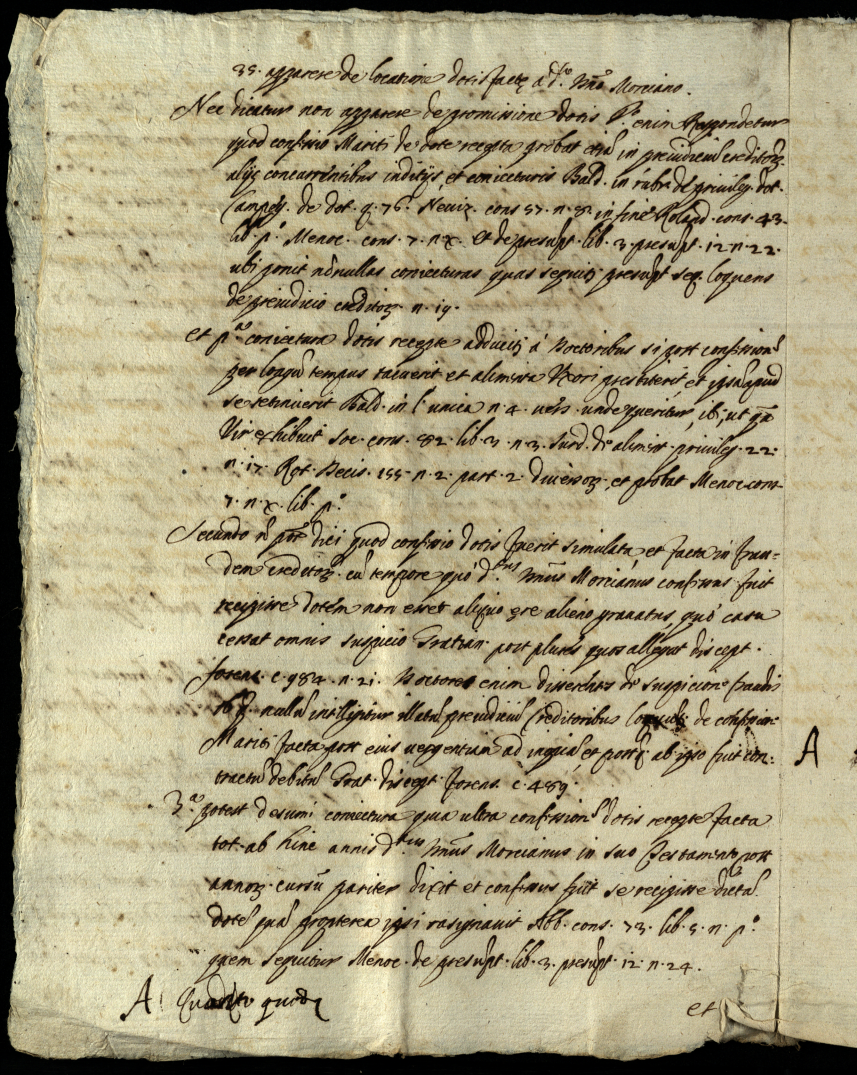 35. apparere de locatione dotis factę a d.to Mño Morciano.
Nec dicatur non apparere de promissione dotis P.o enim Respondetur
quod confessio Mariti de dote recepta probat etiã in preiudiciũ creditorʒ
alijs concurrentibus inditijs, et coniecturis Bald. in rubr. de privileg. dot.
Campeg. de dot. q. 76. Neviz. cons 57. n. 8. in fine Roland. cons. 43.
lib. p.o Menoc. cons. 7. n. x. et de presupt. lib. 3. presupt. 12 n. 22.
ubi ponit nõnullas coniecturas quas sequitʒ presupt seq. loquens
de preiudicio creditorʒ n. 19.
et p.a coniectura dotis recepte adducitʒ à Doctoribus si post confessionẽ
per longũ tempus tacuerit et alimenta Uxori prestiterit et ipsã apud
se retinuerit Bald. in l. unica n. 4. vers. unde queritur, ibi, ut
Vir exhibuit Soc. cons. 82. lib. 3. n. 3. Surd. de aliment. privileg. 22.
n. 17. Rot. Decis. 155. n. 2. part. 2. diversorʒ, et probat Menoc. cons.
7. n. x. lib. p.o
Secundo ñ pot dici quod confessio dotis fuerit simulata, et facta in frau-
dem creditorʒ cũ tempore quo d.tus Mñus Morcianus confessus fuit
recepisse dotem non esset aliquo ęre alieno gravatus, quo casu
cessat omnis suspicio Gratian. post plures quos allegat discept.
forens. c. 982. n. 21. Doctores enim disserentes de suspicione fraudis
nullũ intelligitur illatũ preiudiciũ Creditoribus de confessione
Mariti facta post eius vergentiam ad inopiã et ab ipso fuit con-
tractũ debitũ Grat. discept. forens. c. 489.
3.a potest desumi coniectura quia ultra confessionẽ dotis recepte facta
tot. ab hinc annis d.tus Mñus Morcianus in suo Testamento post
annorʒ cursũ pariter dixit et confessus fuit se recepisse dictã
dotẽ quã propterea ipsi rassignavit Abb. cons. 73. lib. 5. n. p.o
quem sequitur Menoc. de presupt. lib. 3. presupt. 12. n. 24.
A
A
et